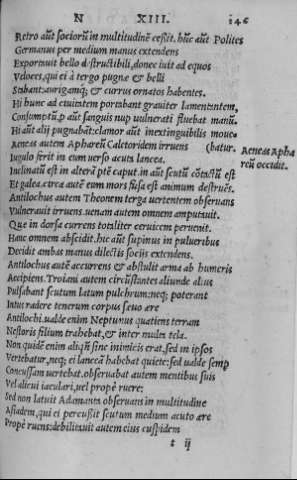 N XIII. 146
Retro aūt sociorū in multitudinē cessit. hūc aūt Polites
Germanus per medium manus extendens
Exportauit bello dstructibili, donec iuit ad equos
Veloces, qui ei à tergo pugnæ & belli
Stabant: aurigamq; & currus ornatos habentes.
Hi hunc ad ciuitatem portabant grauiter lamentantem,
Consumptū, ꝑ aūt sanguis nup uulnerati fluebat manū.
Hi aūt alij pugnabāt: clamor aūt inextinguibilis moue
Aeneas autem Aphareū Calctoridem irruens (batur.
Iugulo ferit in eum uerso acuta lancea. Aeneas Apha
Inclinatū est in alterā ptē caput. in aūt scutū cōtactū est reū occidit.
Et galea, circa autē eum mors fusa est animum destruēs.
Antilochus autem Theonem terga uertentem obseruans
Vulnerauit irruens. uenam autem omnem amputauit.
Que in dorsa currens totaliter ceruicem peruenit.
Hanc omnem abscidit. hic aūt supinus in pulueribus
Decidit ambas manus dilectis socijs extendens.
Antilochus autē accurrens & abstulit arma ab humeris
Recipiens. Troiani autem circūstantes aliunde alius
Pulsabant scutum latum pulchrum: neq; poterant
Intus radere tenerum corpus sæuo ære
Antilochi. ualde enim Neptunus quatiens terram
Nestoris filium trahebat, & inter multa tela.
Non quidē enim aliqñ sine inimicis erat, sed in ipsos
Vertebatur, neq; ei lancea habebat quiete: sed ualde semp
Concussam uertebat. obseruabat autem mentibus suis
Vel alicui iaculari, uel propè ruere:
Sed non latuit Adamanta obseruans in multitudine
Asiadem, qui ei percussit scutum medium acuto ære
Propè ruens: debilitauit autem eius cuspidem
t ij